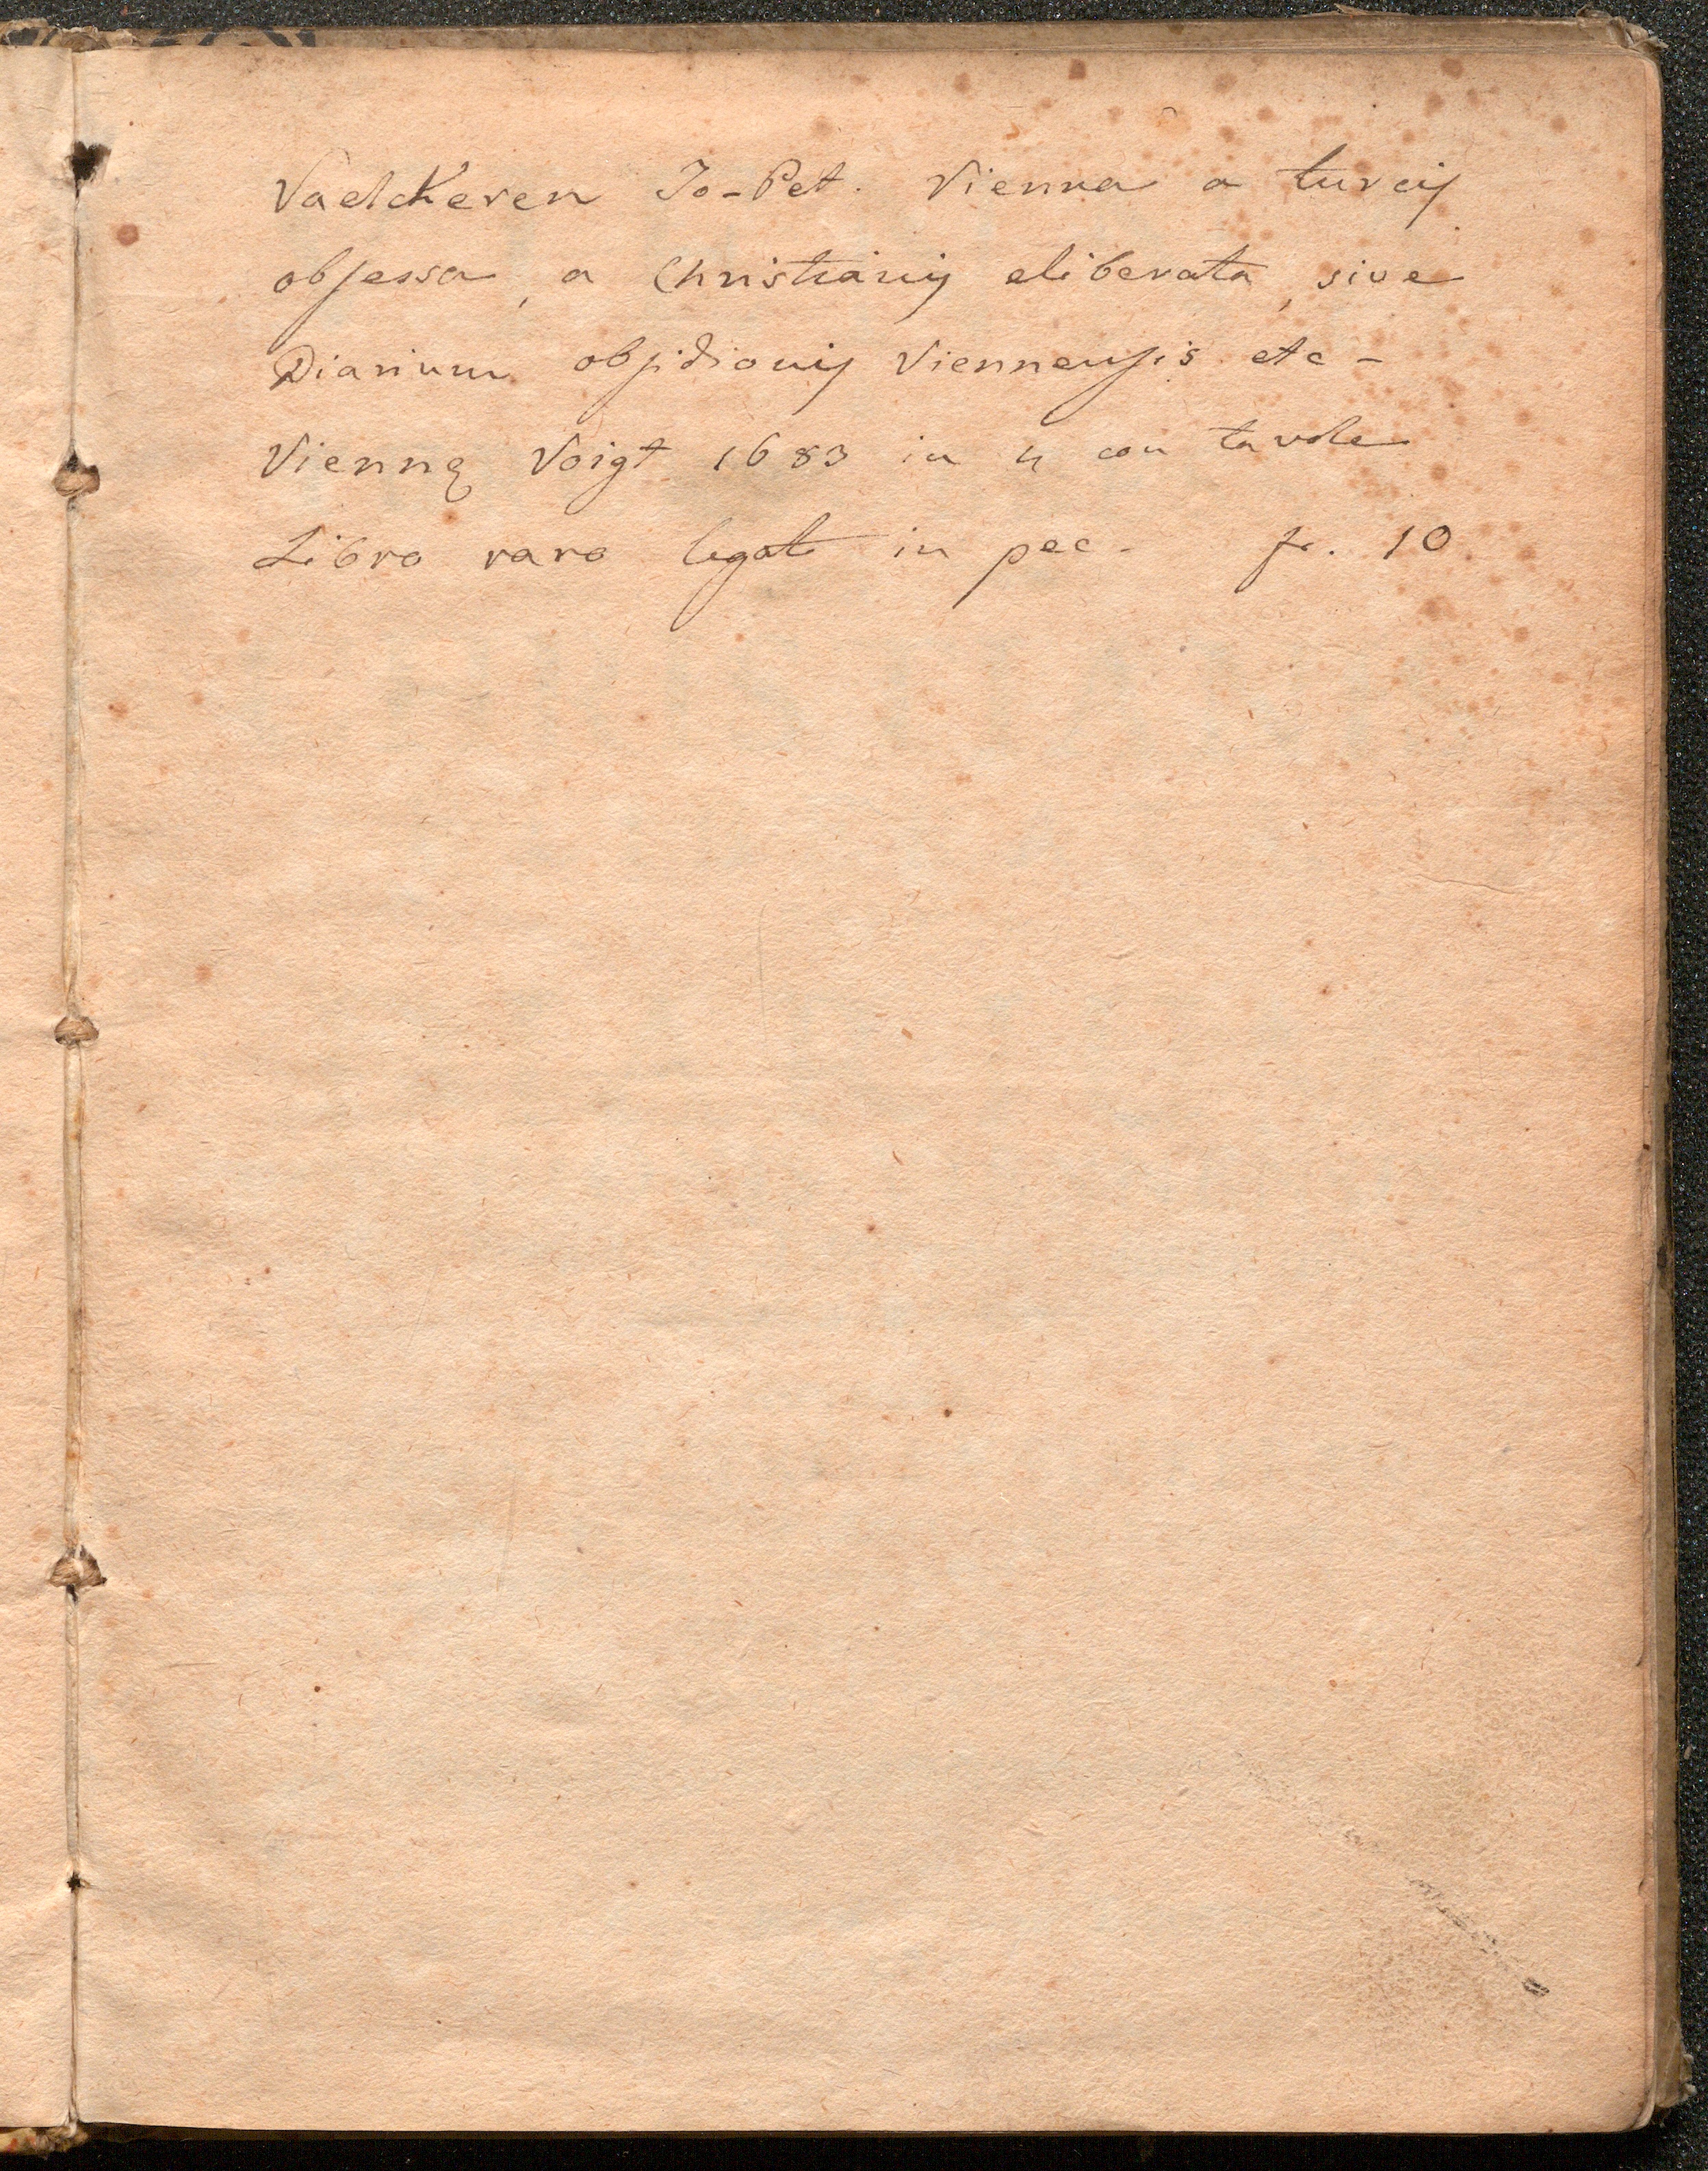 Vaelckeren Jo-Pet. Vienna a turcis
obsessa, a Christianis eliberata, sive
Diarium obsidionis Viennensis etc -
Viennę Voigt 1683 in 4 con tavole
Libro raro legato in pec. fr. 10